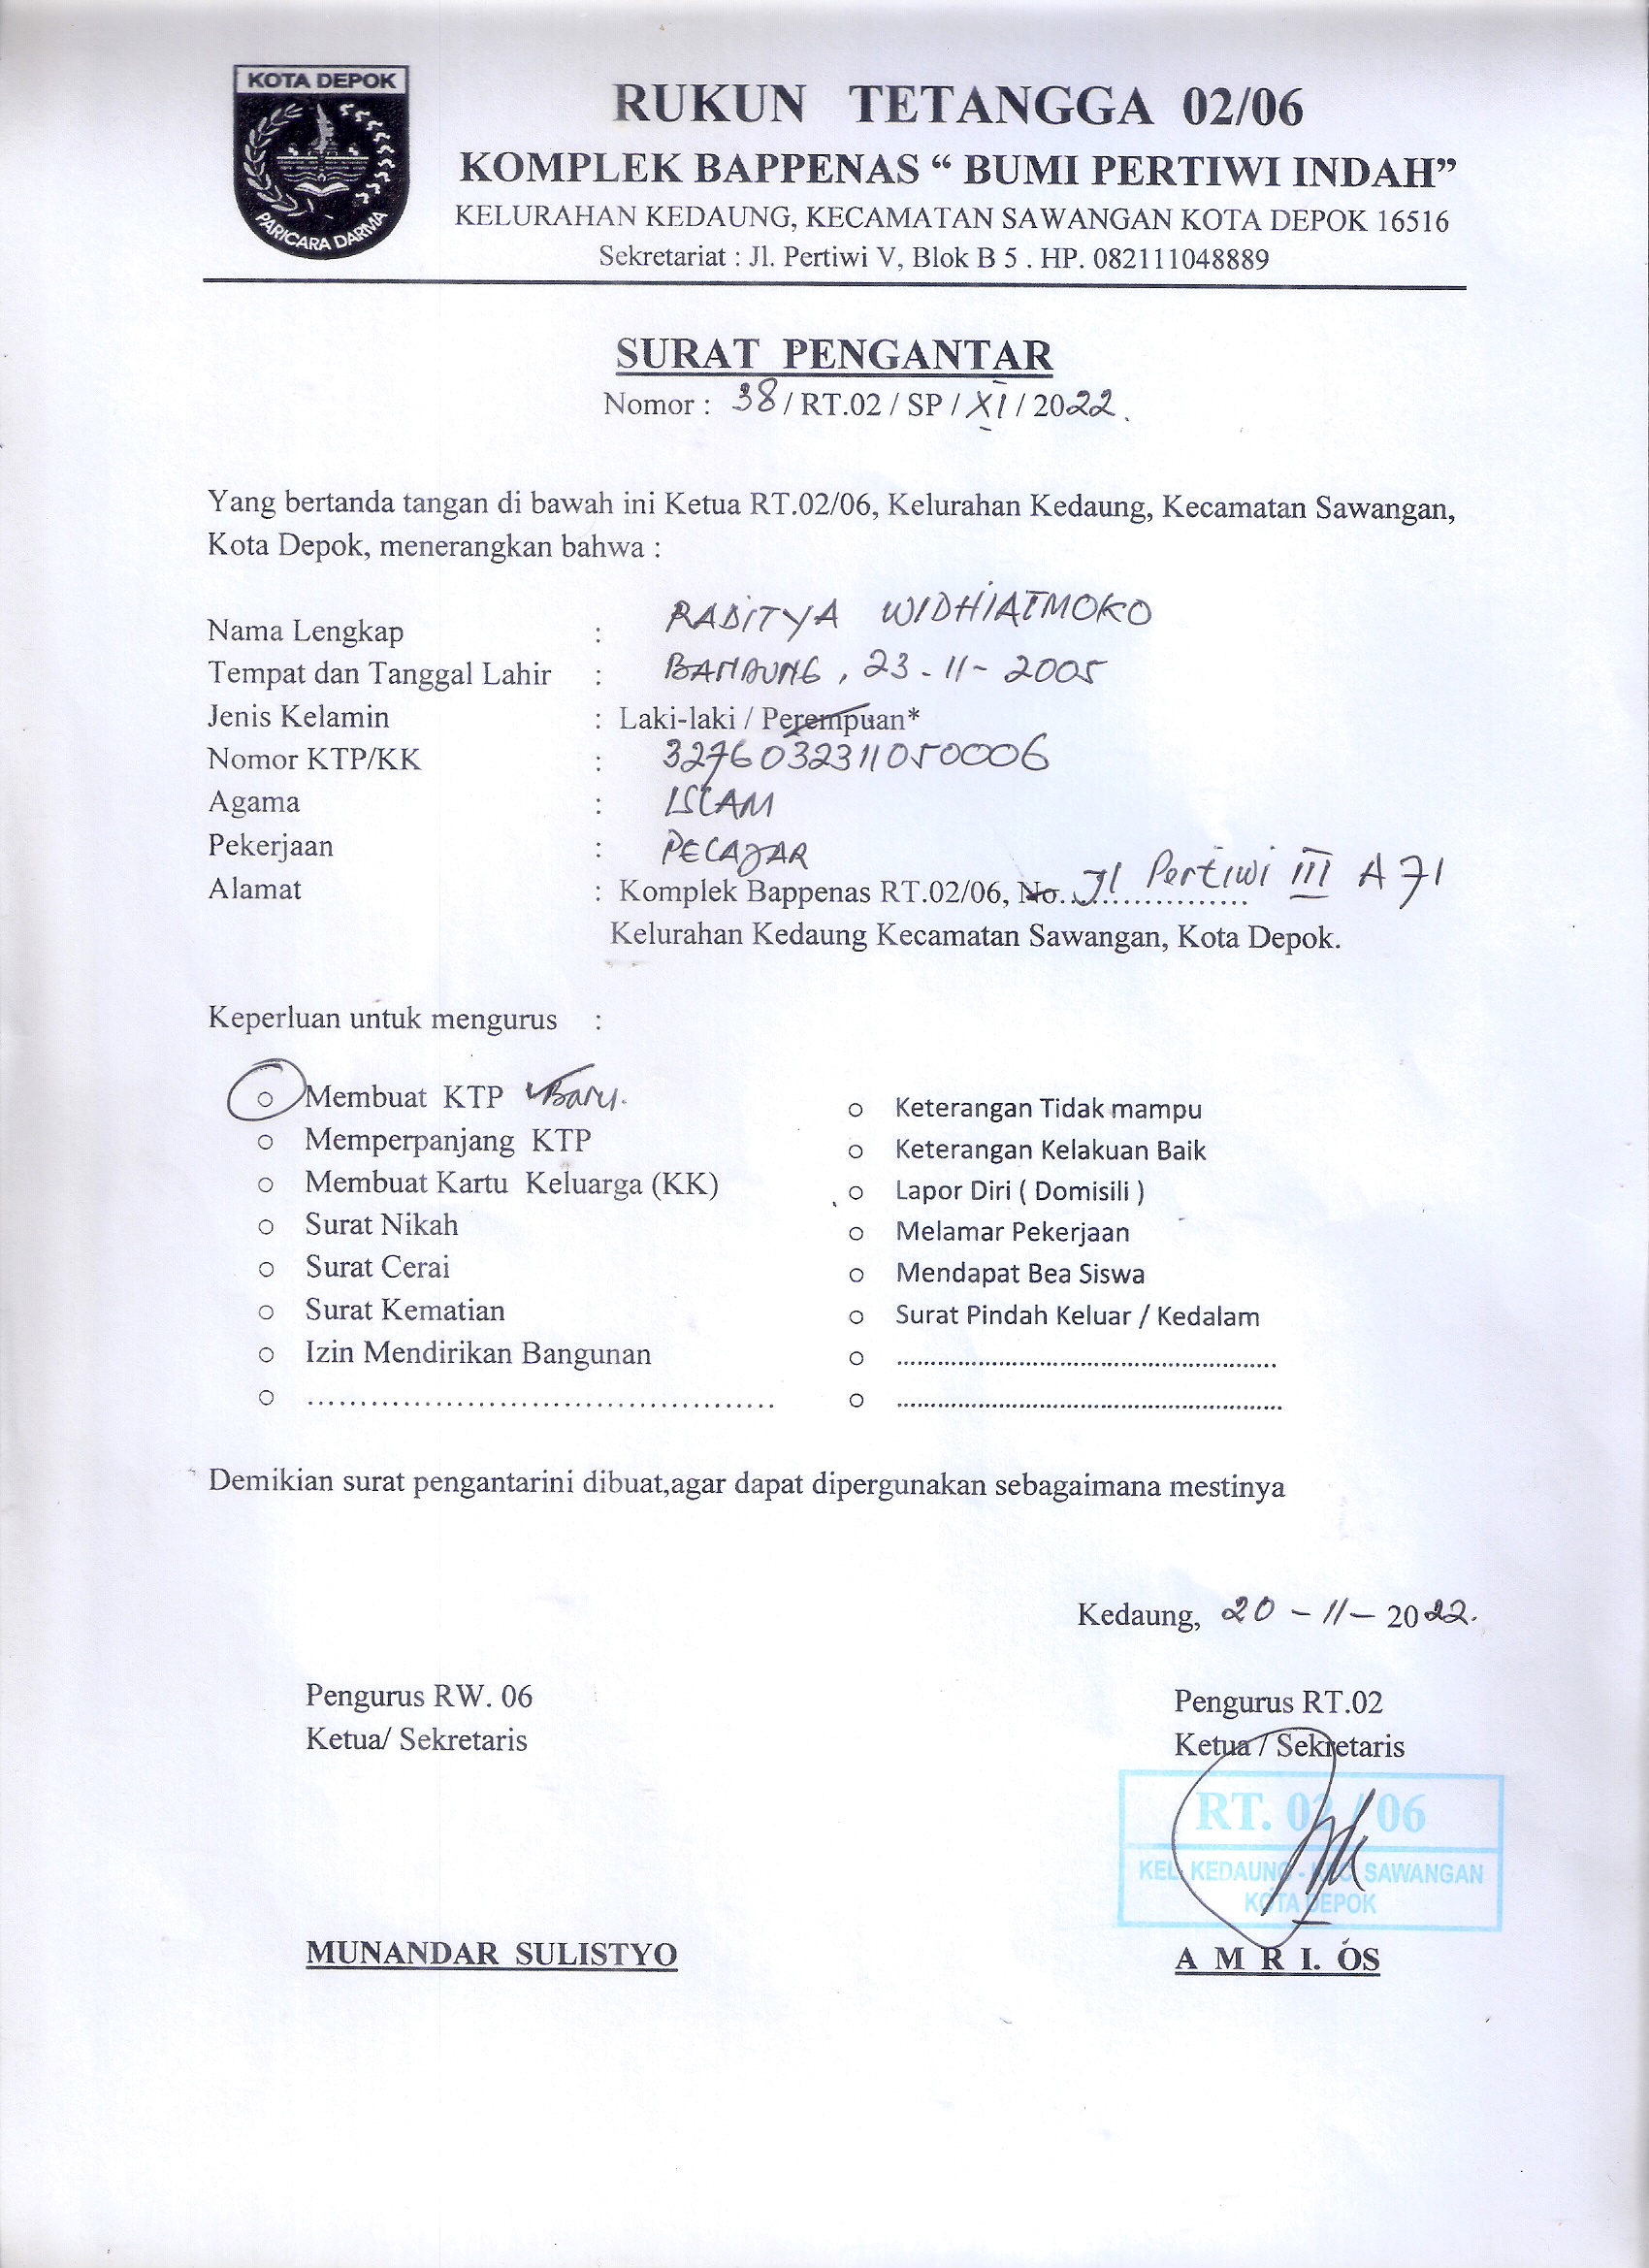 KOTA DEPOK
PARICARA DARMA
RUKUN TETANGGA 02/06
KOMPLEK BAPPENAS “ BUMI PERTIWI INDAH”
KELURAHAN KEDAUNG, KECAMATAN SAWANGAN KOTA DEPOK 16516
Sekretariat : Jl. Pertiwi V, Blok B 5 . HP. 082111048889
SURAT PENGANTAR
Nomor : 38 / RT.02 / SP / XI / 2022.
Yang bertanda tangan di bawah ini Ketua RT.02/06, Kelurahan Kedaung, Kecamatan Sawangan,
Kota Depok, menerangkan bahwa :
Nama Lengkap : RADITYA WIDHIATMOKO
Tempat dan Tanggal Lahir : BANDUNG, 23-11-2005
Jenis Kelamin : Laki-laki / Perempuan*
Nomor KTP/KK : 3276032311050006
Agama : ISLAM
Pekerjaan : PELAJAR
Alamat : Komplek Bappenas RT.02/06, No. Jl Pertiwi III A 71
Kelurahan Kedaung Kecamatan Sawangan, Kota Depok.
Keperluan untuk mengurus :
○ Membuat KTP Baru.
○ Memperpanjang KTP
○ Membuat Kartu Keluarga (KK)
○ Surat Nikah
○ Surat Cerai
○ Surat Kematian
○ Izin Mendirikan Bangunan
○ ............................................
○ Keterangan Tidak mampu
○ Keterangan Kelakuan Baik
○ Lapor Diri ( Domisili )
○ Melamar Pekerjaan
○ Mendapat Bea Siswa
○ Surat Pindah Keluar / Kedalam
○ ............................................
○ ............................................
Demikian surat pengantarini dibuat,agar dapat dipergunakan sebagaimana mestinya
Kedaung, 20-11-2022.
Pengurus RW. 06
Ketua/ Sekretaris
MUNANDAR SULISTYO
Pengurus RT.02
Ketua / Sekretaris
RT. 02 / 06
KEL. KEDAUNG - KEC. SAWANGAN
KOTA DEPOK
A M R I. OS